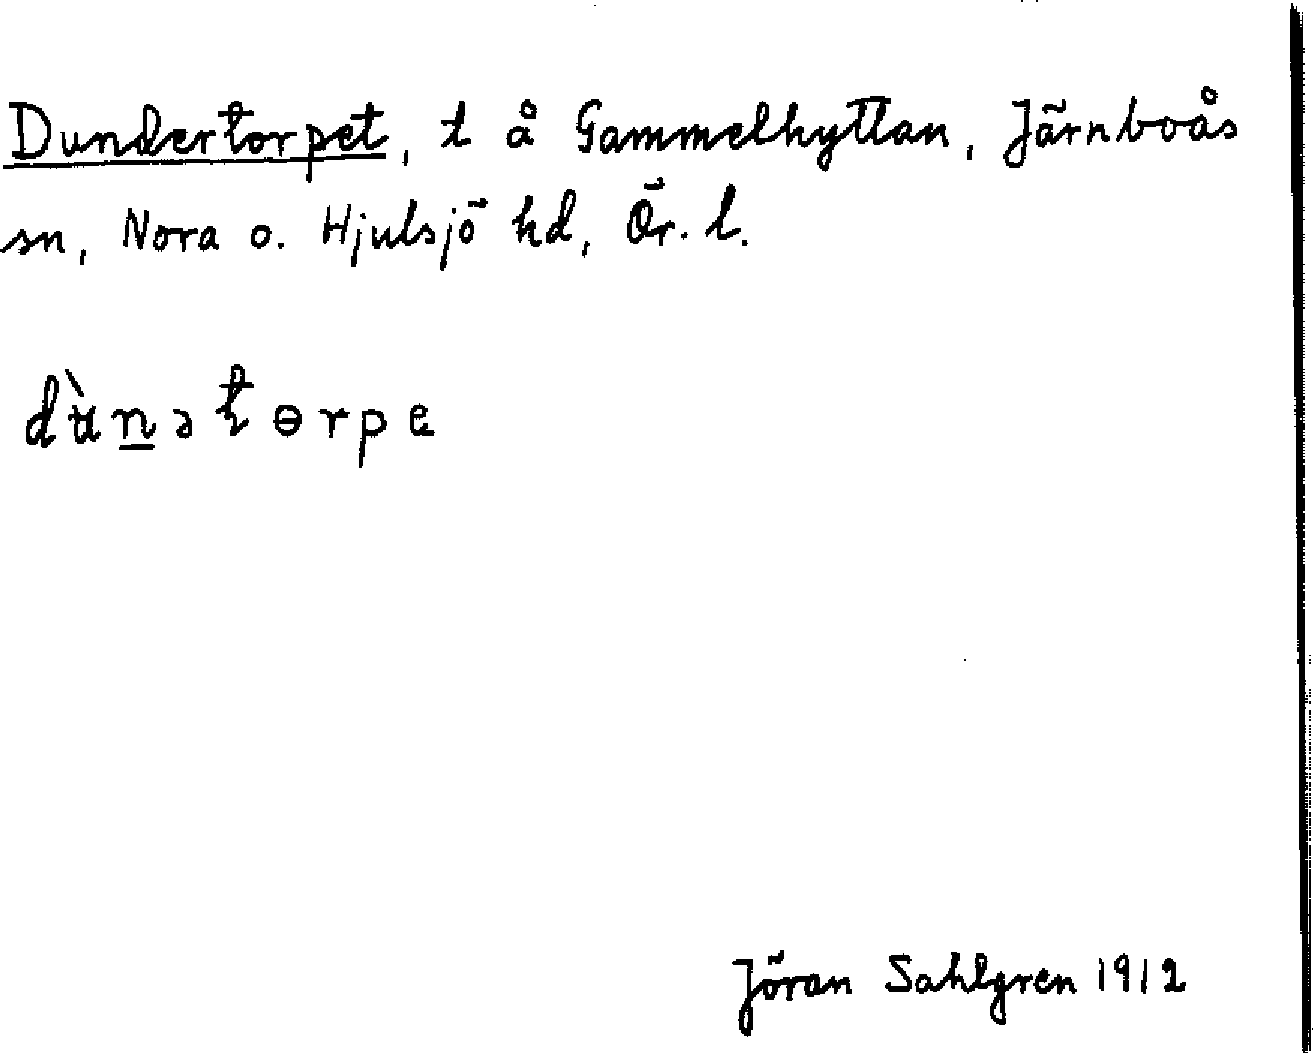 Dundertorpet, t å Gammelhyttan, Järnboås
sn, Nora o. Hjulsjö hd, Ör. l.
dùnətɵrpe
Jöran Sahlgren 1912